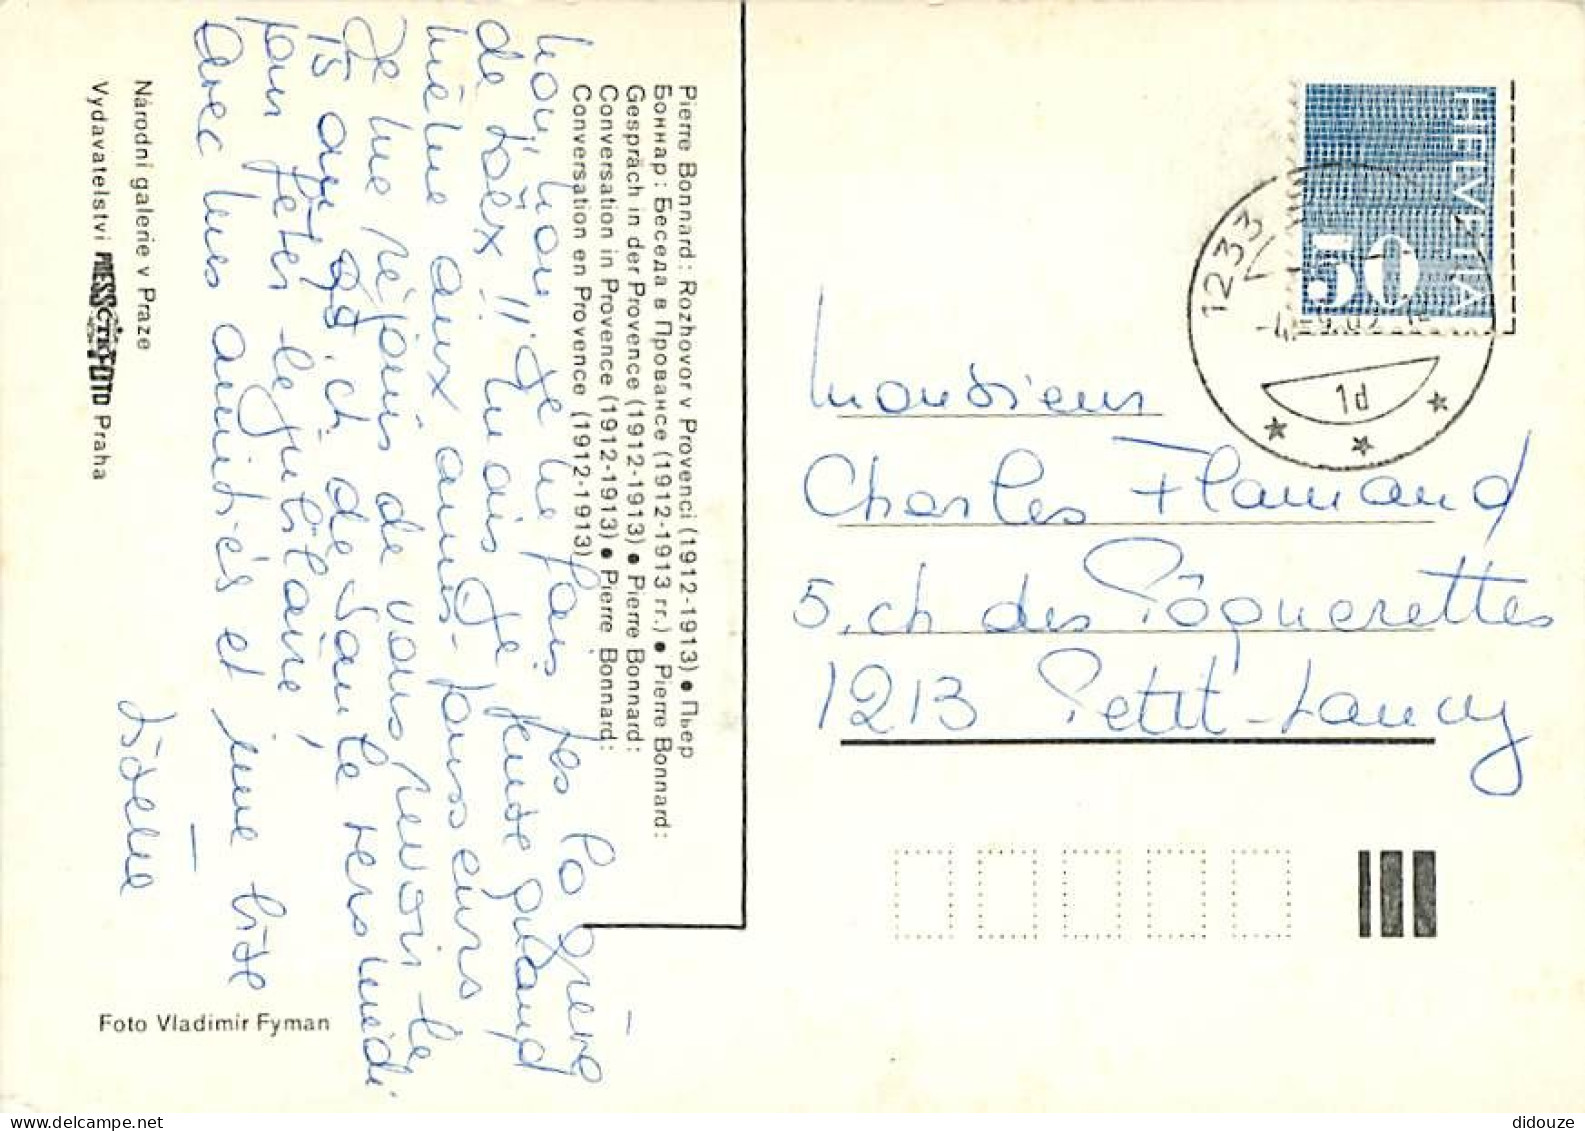 Pierre Bonnard: Rozhovor v Provenci (1912-1913) ● Пьер
Боннар: Беседа в Провансе (1912-1913 гг.) ● Pierre Bonnard:
Gespräch in der Provence (1912-1913) ● Pierre Bonnard:
Conversation in Provence (1912-1913) ● Pierre Bonnard:
Conversation en Provence (1912-1913)
Non, non!! Je ne fais pas la grève
de voëx!! mais je pense quand
même aux amis - fans seurs
Je me réjouis de vous revoir le
15 août, 28, ch. de Saule vers midi
pour fêter le
avec mes amitiés et une bise
Národní galerie v Praze
Vydavatelství PRESSFOTO Praha
ČTK
Foto Vladimír Fyman
HELVETIA
50
1233
1d
Monsieur
Charles Flamand
5, ch des Pâquerettes
1213 Petit-Lancy
didouze